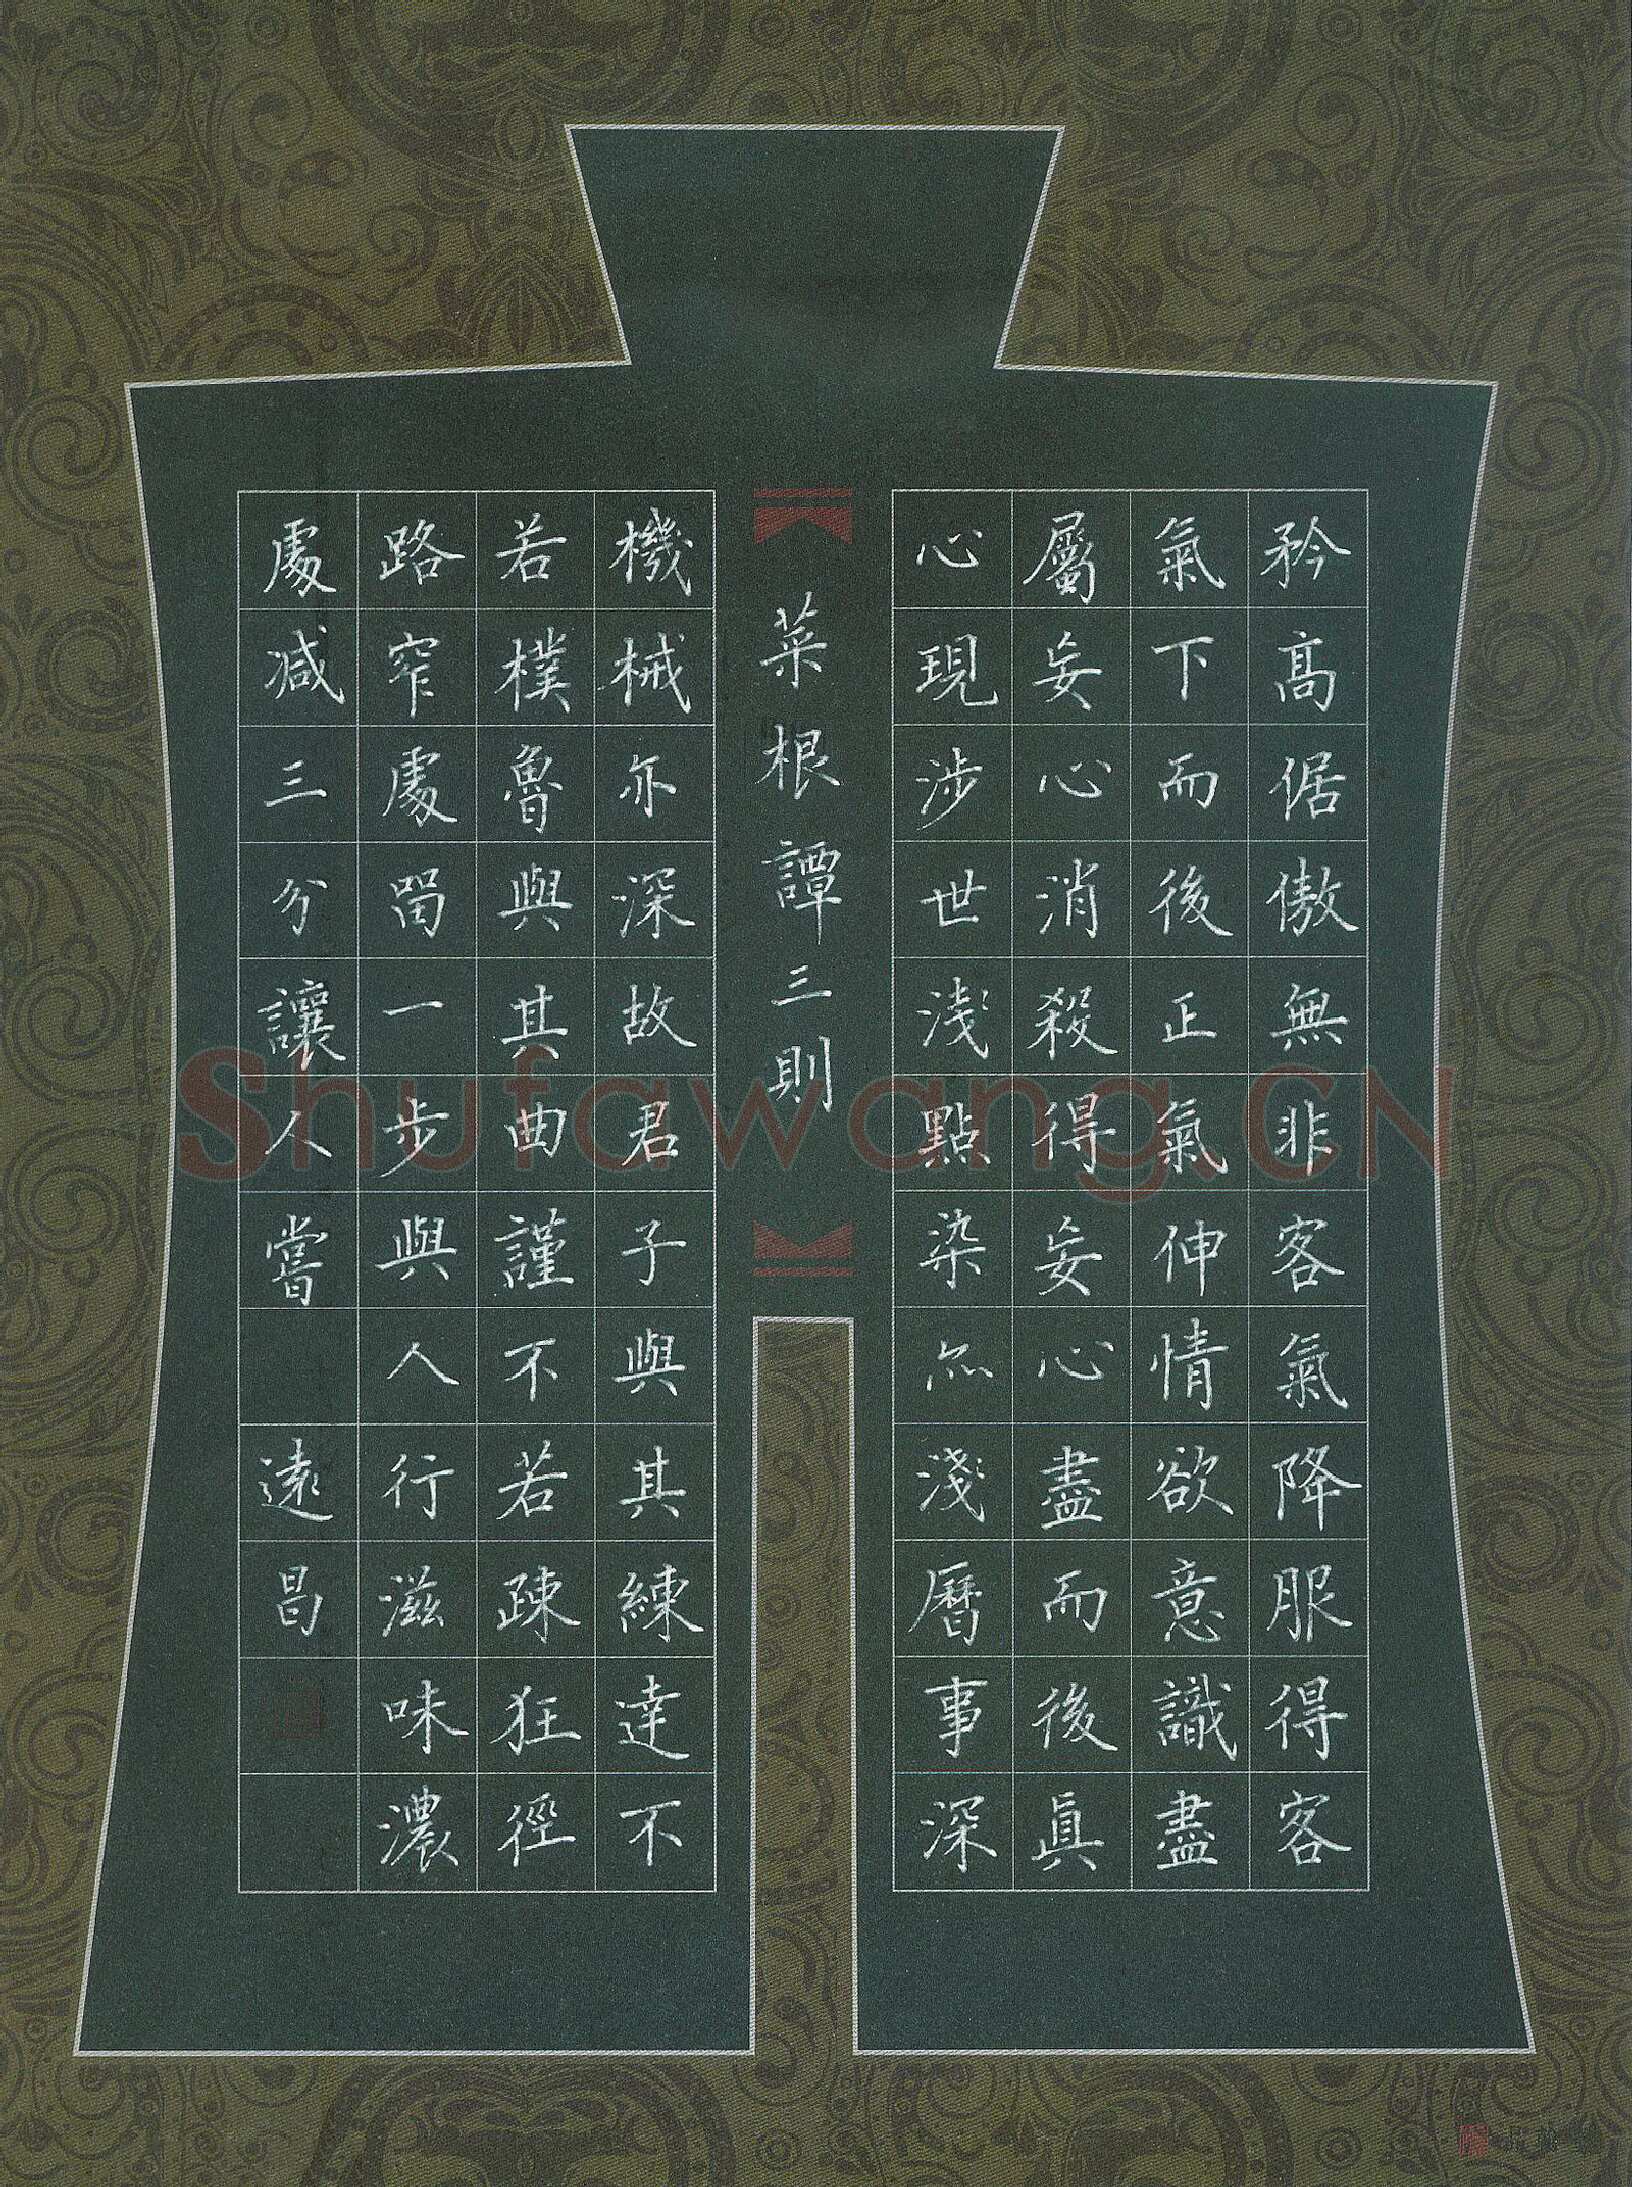 矜高倨傲無非客氣降服得客
氣下而後正氣伸情欲意識盡
屬妄心消殺得妄心盡而後眞
心現涉世淺點染亦淺曆事深
菜根譚三則
機械亦深故君子與其練達不
若樸魯與其曲謹不若疎狂徑
路窄處畱一步與人行滋味濃
處減三分讓人嘗 遠昌
Shufawang.CN